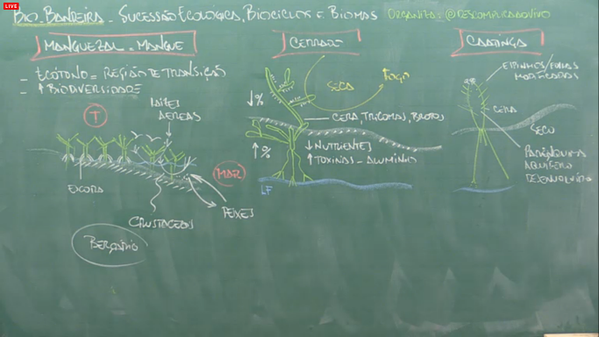 LIVE
BIO. BANDEIRA - SUCESSÃO ECOLÓGICA, BIOCICLOS E BIOMAS ORGANIZA=@DESCOMPLICAAOVIVO
MANGUEZAL - MANGUE
- ECÓTONO = REGIÃO DE TRANSIÇÃO
- ↑ BIODIVERSIDADE
RAÍZES
AÉREAS
T
MAR
ESCORA
CRUSTÁCEOS
PEIXES
BERÇÁRIO
CERRADO
SECA
FOGO
↓%
CERA, TRICOMAS, BROTOS
↑%
↓ NUTRIENTES
↑ TOXINAS - ALUMÍNIO
LF
CAATINGA
ESPINHOS/FOLHAS
MODIFICADAS
CERA
SECO
PARÊNQUIMA
AQUÍFERO
DESENVOLVIDO